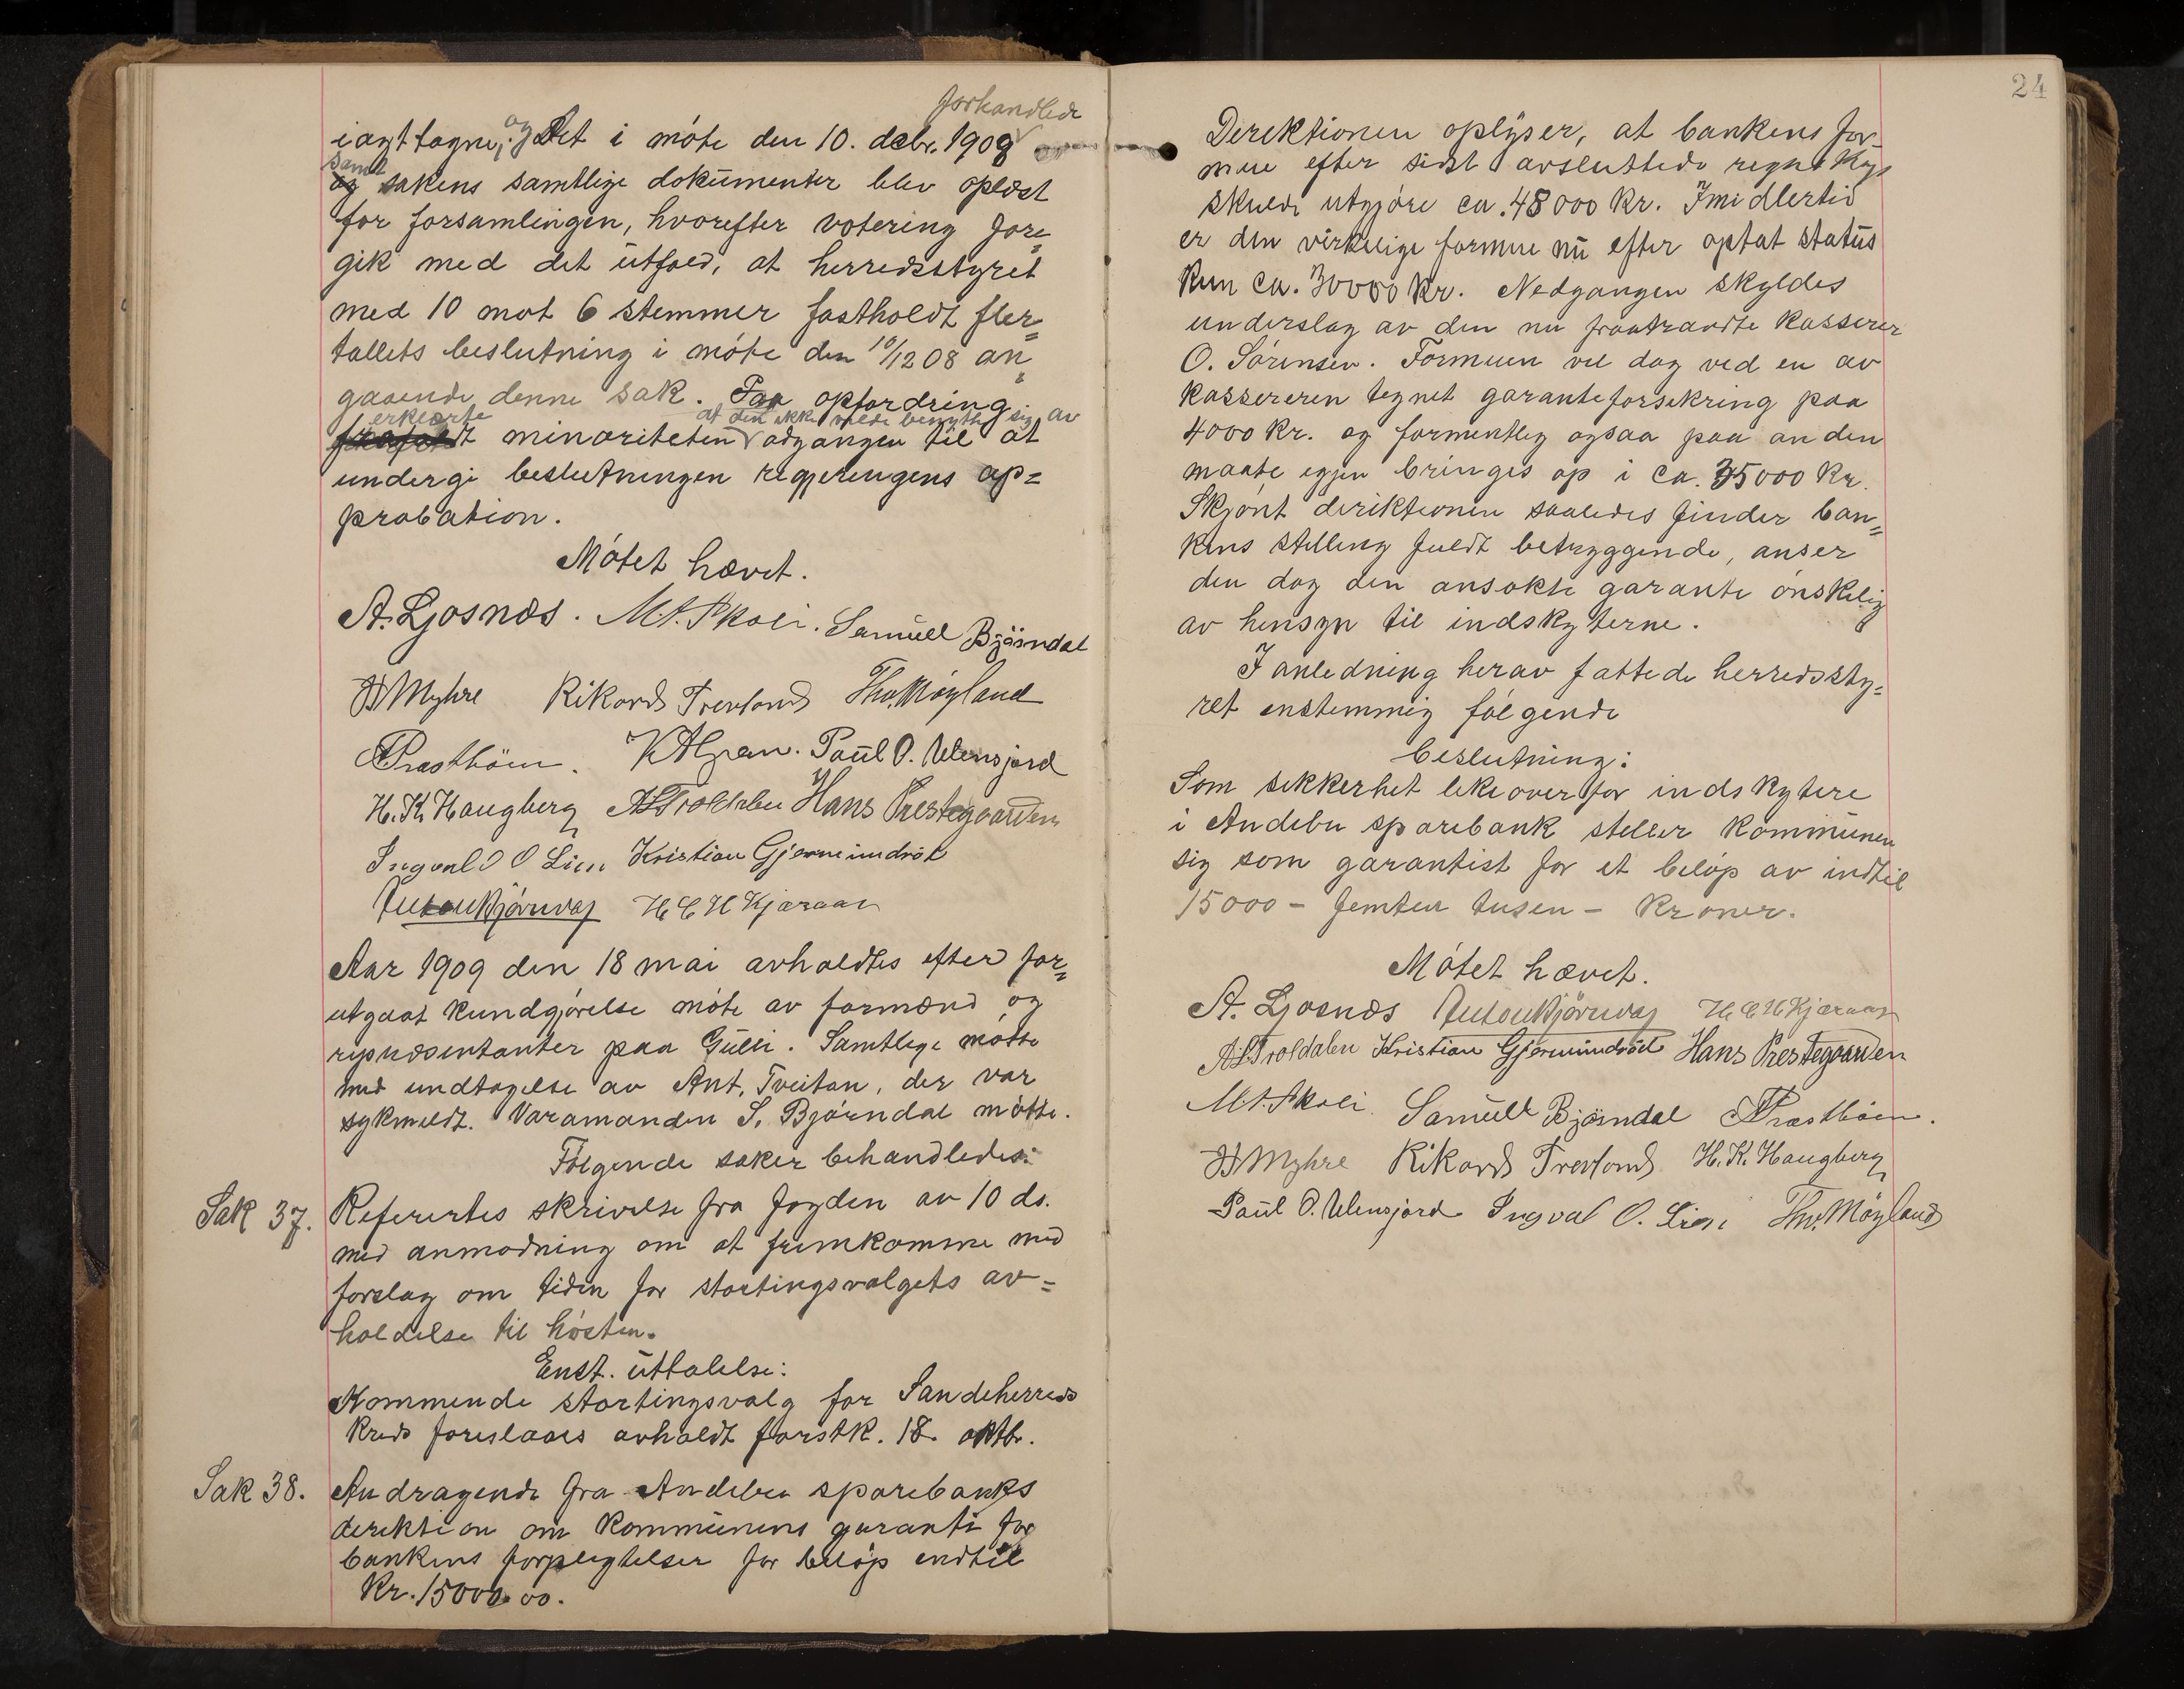 forhandlede
iagttagne, og Det i møte den 10. decbr. 1908
samt
og sakens samtlige dokumenter blev oplæst
for forsamlingen, hvorefter votering fore=
gik med det utfald, at herredsstyret
med 10 mot 6 stemmer fastholdt fler=
tallets beslutning i møte den 10/12 08 an=
gaaende denne sak. Paa opfordring
erklærte at den ikke vilde benytte sig av
minoriteten adgangen til at
undergi beslutningen regjeringens ap=
probation.
Møtet hævet.
A. Ljosnæs. M.A. Skoli. Samuell Bjørndal
Myhre Rikard Trevland Tho. Møyland
Præstbøen. Paul O. Ulensjord
H. K. Haugberg A L Troldalen Hans Prestegaarden
Ingvald O Lien Kristian Gjermundrød
Anton Bjørnvag H C H Kjæraas
Aar 1909 den 18 mai avholdtes efter for=
utgaat kundgjørelse møte av formænd og
repræsentanter paa Gulli. Samtlige møtte
med undtagelse av Ant. Tveitan, der var
sykmeldt. Varamanden S. Bjørndal møtte.
Følgende saker behandledes:
Sak 37. Refererties skrivelse fra fogden av 10 ds.
med anmodning om at fremkomme med
forslag om tiden for stortingsvalgets av=
holdelse til høsten.
Enst. uttalelse:
Kommende stortingsvalg for Sandeherreds
kreds foreslaaes avholdt førstk. 18. oktb.
Sak 38. Andragende fra Andebu sparebanks
direktion om kommunens garanti for
bankens forpligtelser for beløp indtil
Kr. 15000.00.
24
Direktionen oplyser, at bankens for=
mue efter sidst avsluttede regnskap
skulde utgjøre ca. 48000 kr. Imidlertid
er den virkelige formue nu efter optat status
kun ca. 30000 kr. Nedgangen skyldes
underslag av den nu fratraadte kasserer
O. Sørensen. Formuen vil dog ved en av
kassereren tegnet garantiforsikring paa
4000 kr. og formentlig ogsaa paa anden
maate igjen bringes op i ca. 35000 kr.
Skjønt direktionen saaledes finder ban=
kens stilling fuldt betryggende, anser
den dog den ansøkte garanti ønskelig
av hensyn til indskyterne.
I anledning herav fattede herredssty=
ret enstemmig følgende
beslutning:
Som sikkerhet likeoverfor indskytere
i Andebu sparebank stiller kommunen
sig som garantist for et beløp av indtil
15000 - femten tusen - kroner.
Møtet hævet.
A. Ljosnæs Anton Bjørnvag H C H Kjæraas
A L Troldalen Kristian Gjermundrød Hans Prestegaarden
M.A. Skoli. Samuell Bjørndal Præstbøen.
Myhre Rikard Trevland. H. K. Haugberg
Paul O. Ulensjord Ingval O. Lien Tho. Møyland